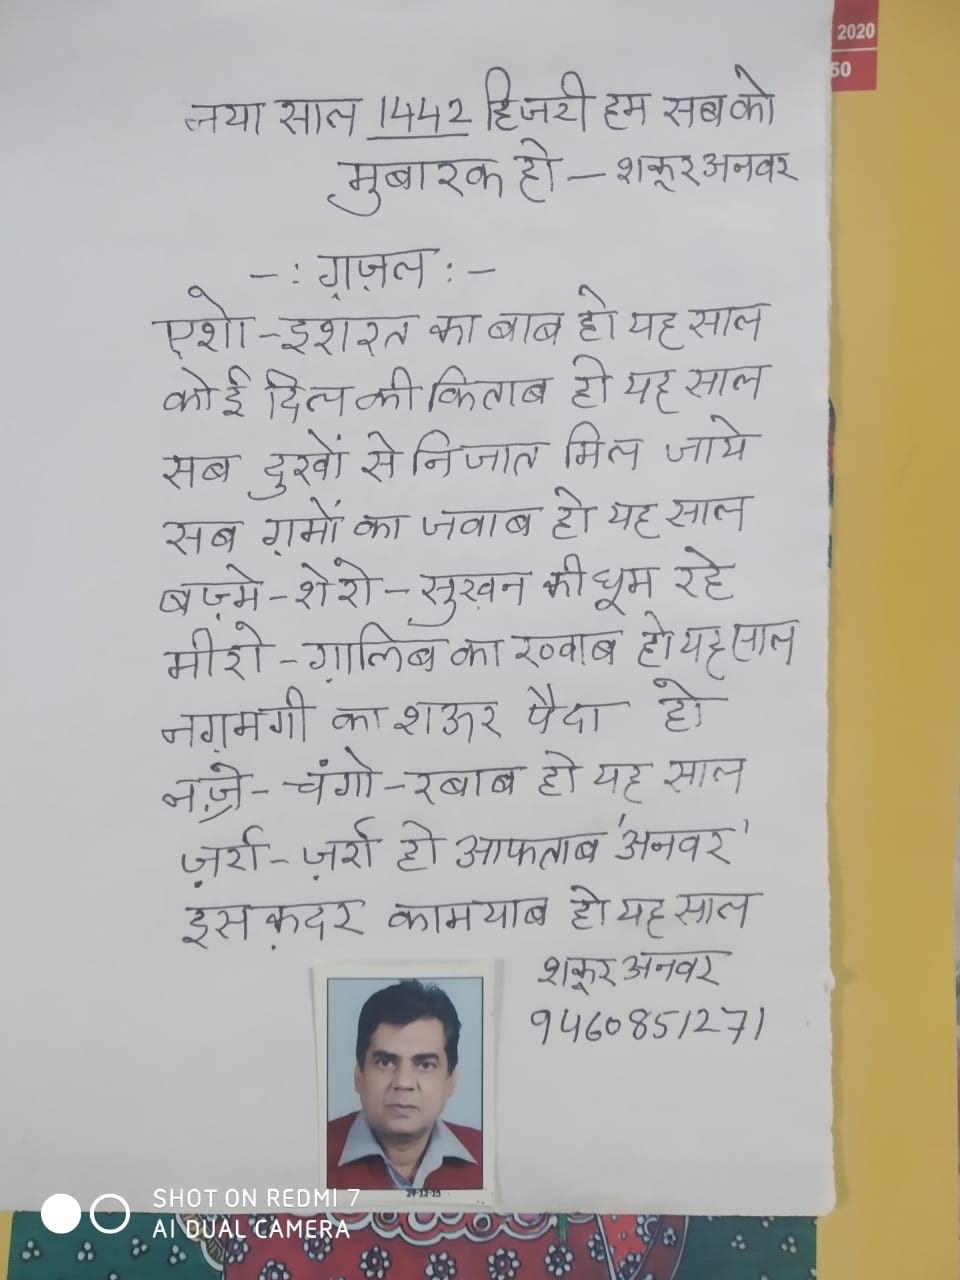 2020
50
नया साल 1442 हिजरी हम सब को
मुबारक हो — शकूर अनवर
-: ग़ज़ल :-
एशो-इशरत का बाब हो यह साल
कोई दिल की किताब हो यह साल
सब दुखों से निजात मिल जाये
सब ग़मों का जवाब हो यह साल
बज़्मे-शेरो-सुख़न की धूम रहे
मीरो-ग़ालिब का ख्वाब हो यह साल
नग़मगी का शऊर पैदा हो
नज़्रे-चंगो-रबाब हो यह साल
ज़र्रा-ज़र्रा हो आफताब 'अनवर'
इस क़दर कामयाब हो यह साल
शकूर अनवर
9460851271
24-12-15
SHOT ON REDMI 7
AI DUAL CAMERA